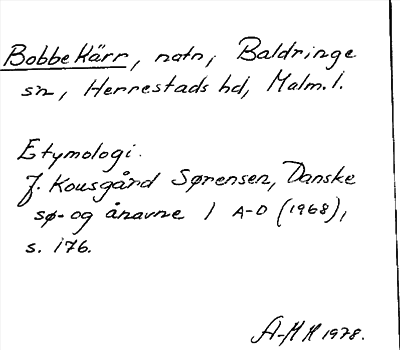 Bobbe Kärr, natn, Baldringe
sn, Herrestads hd, Malm. l.
Etymologi.
J. Kousgård Sørensen, Danske
sø- og ånavne 1 A-D (1968),
s. 176.
A-M H 1978.